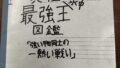 最強王
図鑑
「強い物同士の
熱い戦い」